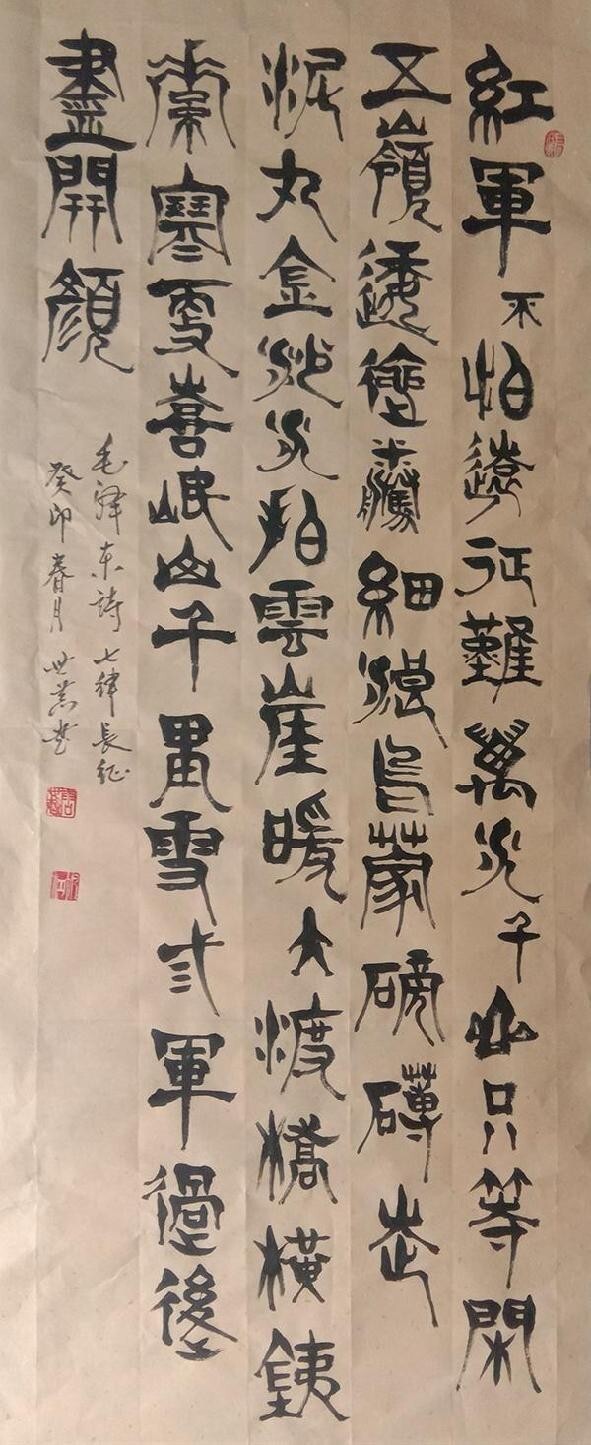 紅軍不怕遠征難萬水千山只等閑
五嶺逶迤騰細浪烏蒙磅礴走
泥丸金沙水拍雲崖暖大渡橋橫銕
索寒更喜岷山千里雪弎軍過後
盡開顏
毛澤东詩七律長征
癸卯春月世书